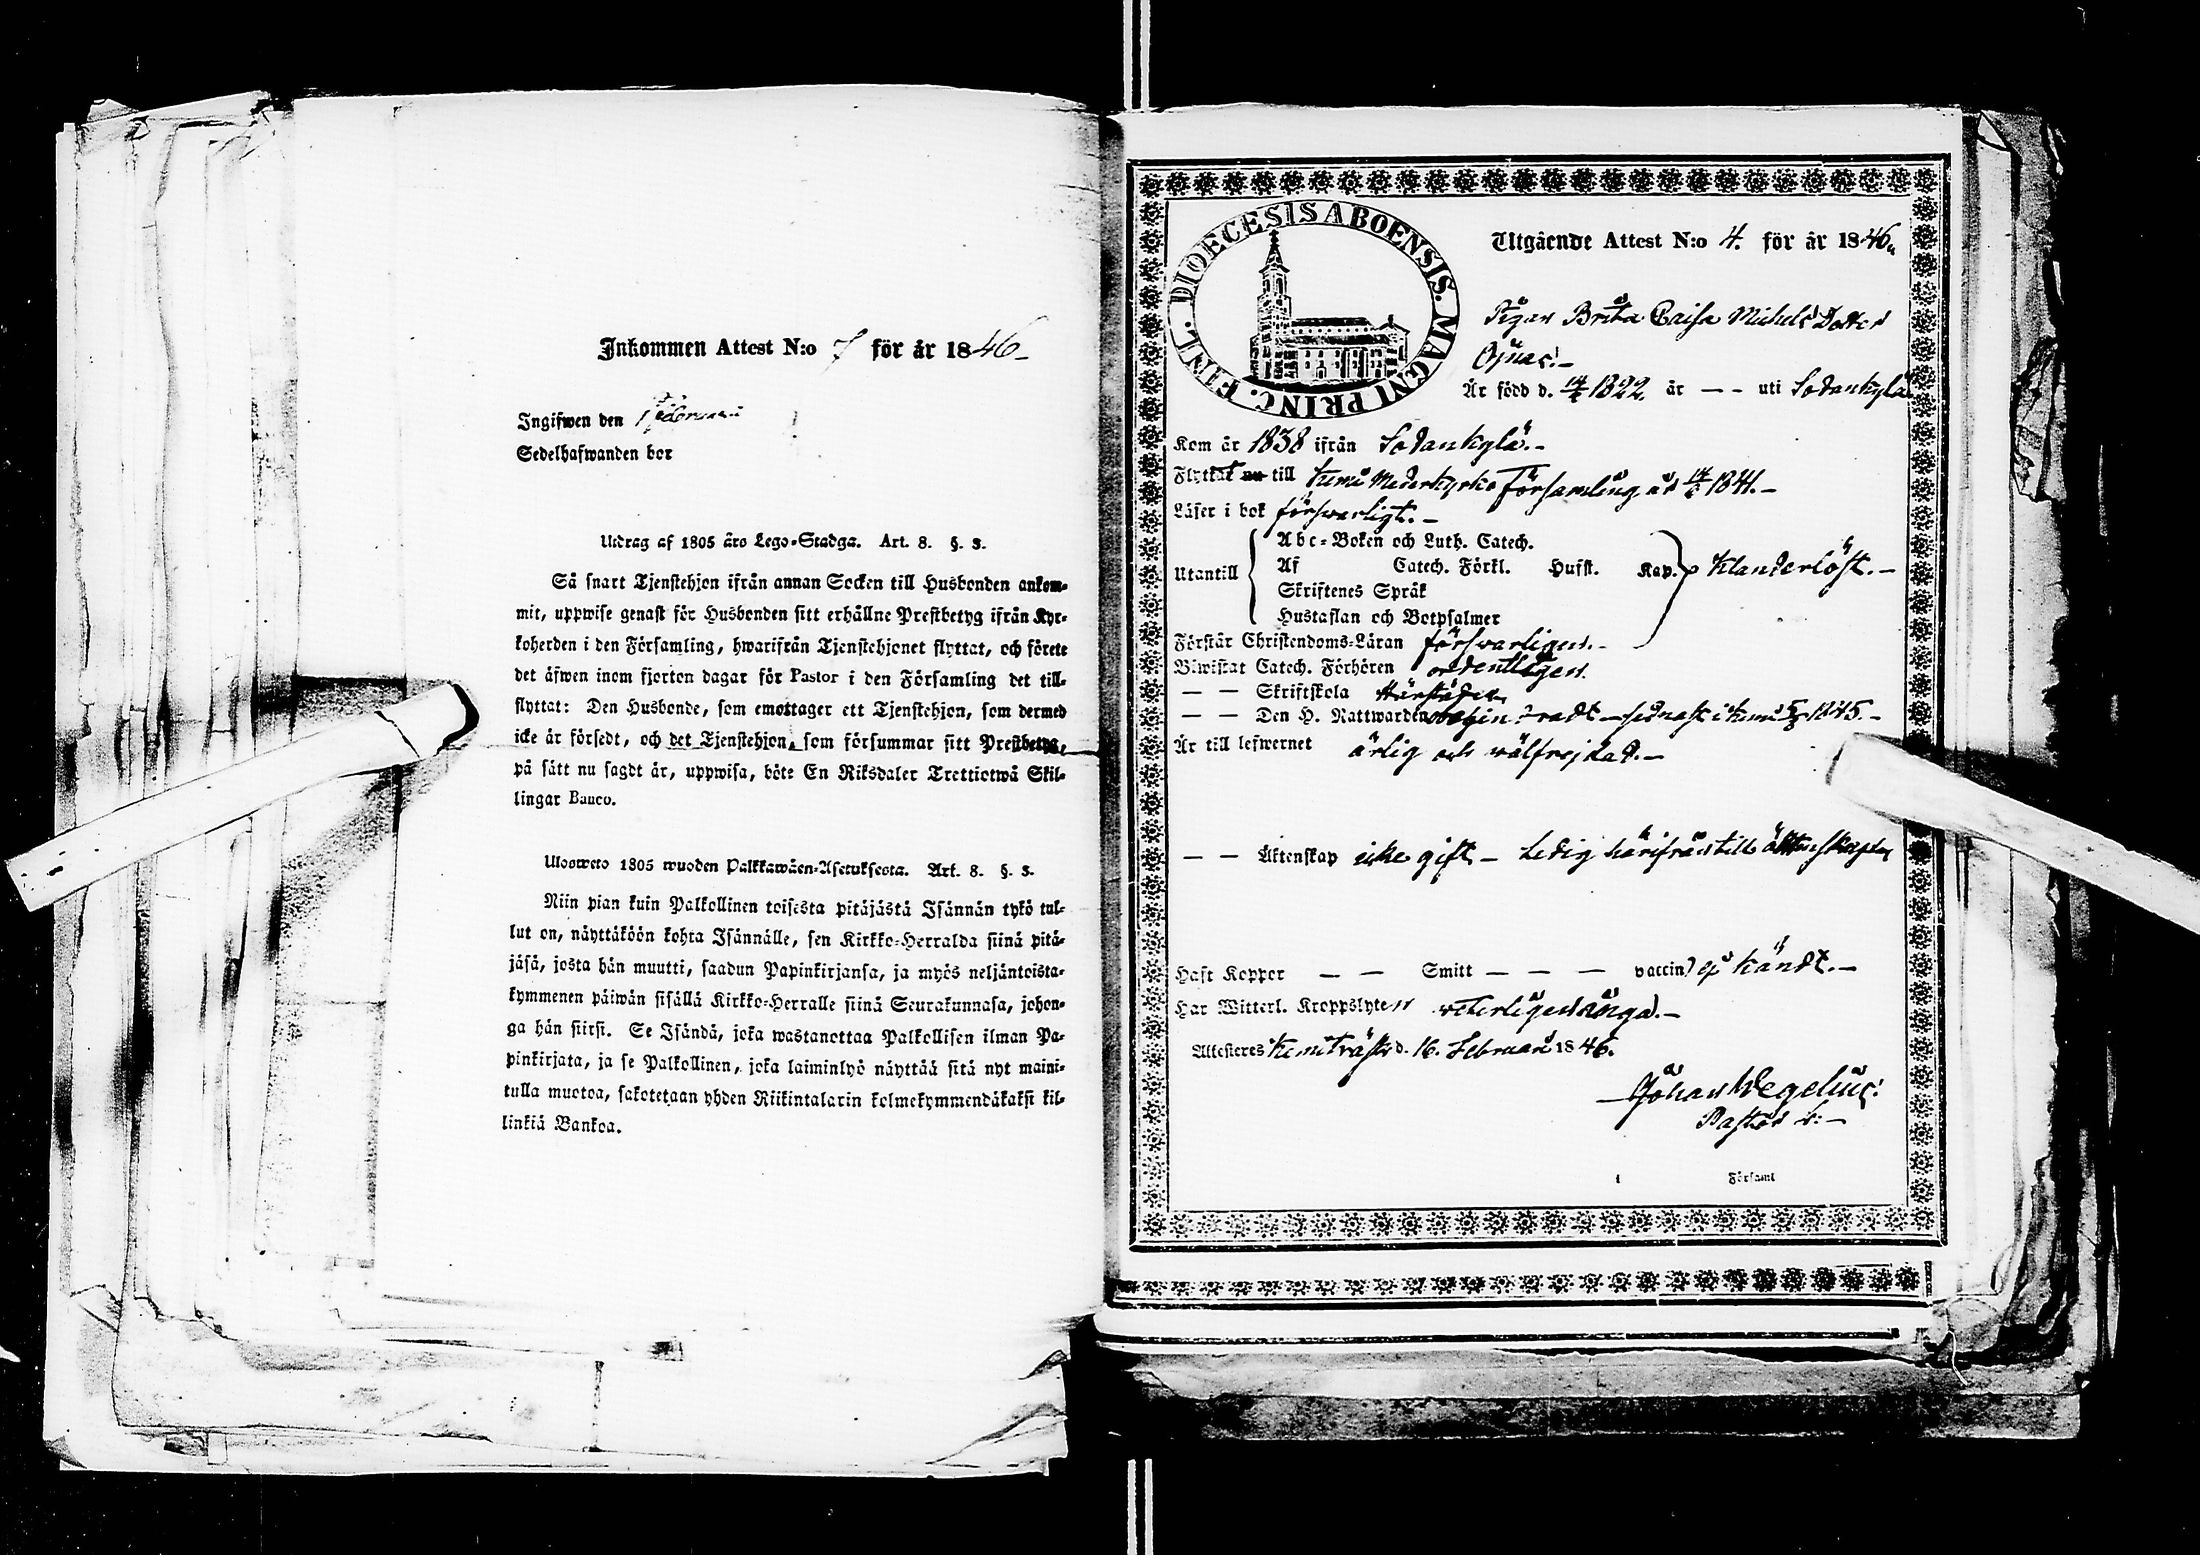 Inkommen Attest N:o 7 för år 1846
Ingifwen den Februarii
Sedelhafwanden bor
Utdrag af 1805 års Lego-Stadga. Art. 8. §. 3.
Så snart Tjenstehjon ifrån annan Socken till Husbonden ankom-
mit, uppwise genast för Husbonden sitt erhållne Prestbetyg ifrån Kyr-
koherden i den Församling, hwarifrån Tjenstehjonet flyttat, och förete
det äfwen inom fjorton dagar för Pastor i den Församling det till-
flyttat: Den Husbonde, som emottager ett Tjenstehjon, som dermed
icke är försedt, och det Tjenstehjon, som försummar sitt Prestbetyg,
på sätt nu sagdt är, uppwisa, böte En Riksdaler Trettiotwå Skil-
lingar Banco.
Ulosweto 1805 wuoden Palkkawäen-Asetuksesta. Art. 8. §. 3.
Niin pian kuin Palkollinen toisesta pitäjästä Isännän tykö tul-
lut on, näyttäköön kohta Isännälle, sen Kirkko-Herralda siinä pitä-
jäsä, josta hän muutti, saadun Papinkirjansa, ja myös neljäntoista-
kymmenen päiwän sisällä Kirkko-Herralle siinä Seurakunnasa, johon-
ga hän siirsi. Se Isändä, joka wastanottaa Palkollisen ilman Pa-
pinkirjata, ja se Palkollinen, joka laiminlyö näyttää sitä nyt maini-
tulla muotoa, sakotetaan yhden Riikintalarin kolmekymmendäkaksi kil-
linkiä Bankoa.
FINL. DIOECESIS ABOENSIS. MAGNI PRINC.
Utgående Attest N:o 4. för år 1846.
Pigan Brita Caisa Michels Dotter
Ojnas.
Är född d. 1822. år — — uti Sodankylä
Kom år 1838 ifrån Sodankylä.
Flyttat nu till Kemi Moderkyrko Församling år 1841.
Läser i bok förswarligt.
Abc-Boken och Luth. Catech.
Utantill Af Catech. Förkl. Husst. Kap. klanderlöst.
Skriftenes Språk
Hustaflan och Botpsalmer
Förstår Christendoms-Läran förswarligen.
Biwistat Catech. Förhören ordentligen.
— — Skriftskola
— — Den H. Nattwarden sednast i Kemi 1845.
Är till lefwernet ärlig och wälfrejdad.
— — Äktenskap icke gift — Ledig härifrån till äktenskap
Haft Koppor — — Smitt — — — vaccin) ej kändt.
Har Witterl. Kroppslyten veterligen inga.
Attesteres Kemiträsk d. 16. Februari 1846.
Johan Wegelius.
Pastor
i Församl